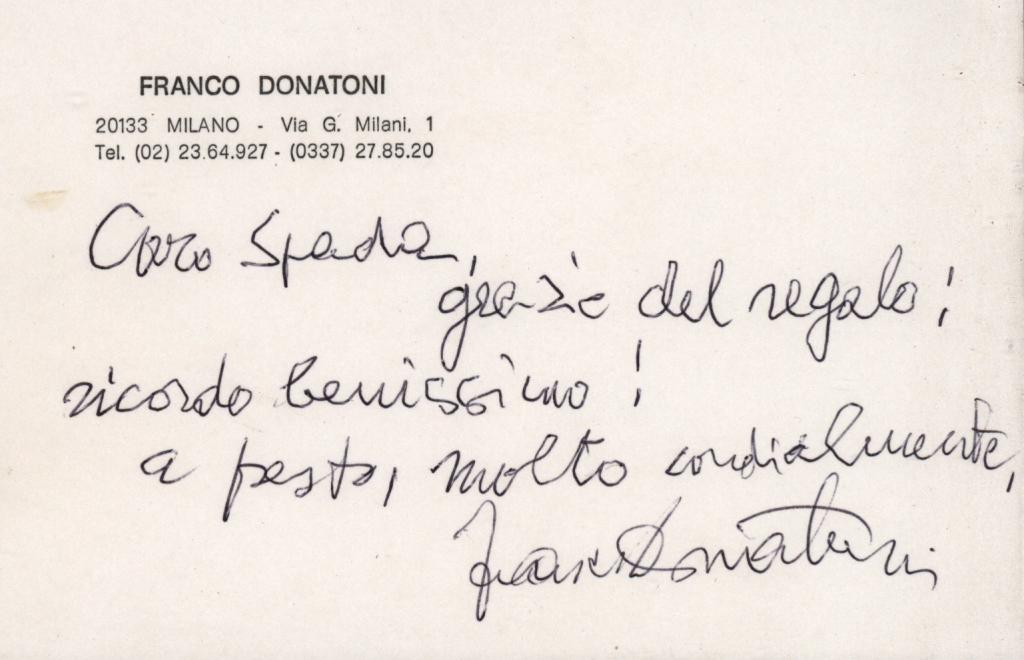 FRANCO DONATONI
20133 MILANO - Via G. Milani, 1
Tel. (02) 23.64.927 - (0337) 27.85.20
Caro Spada,
grazie del regalo!
ricordo benissimo!
a presto, molto cordialmente,
Franco Donatoni